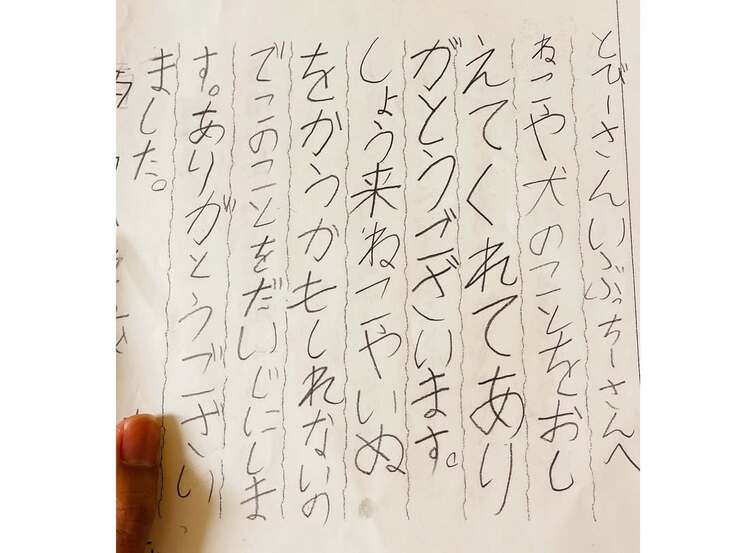 とびーさんいぶっちーさんへ
ねこや犬のことをおし
えてくれてあり
がとうございます。
しょう来ねこやいぬ
をかうかもしれないの
でこのことをだいじにしま
す。ありがとうござい
ました。